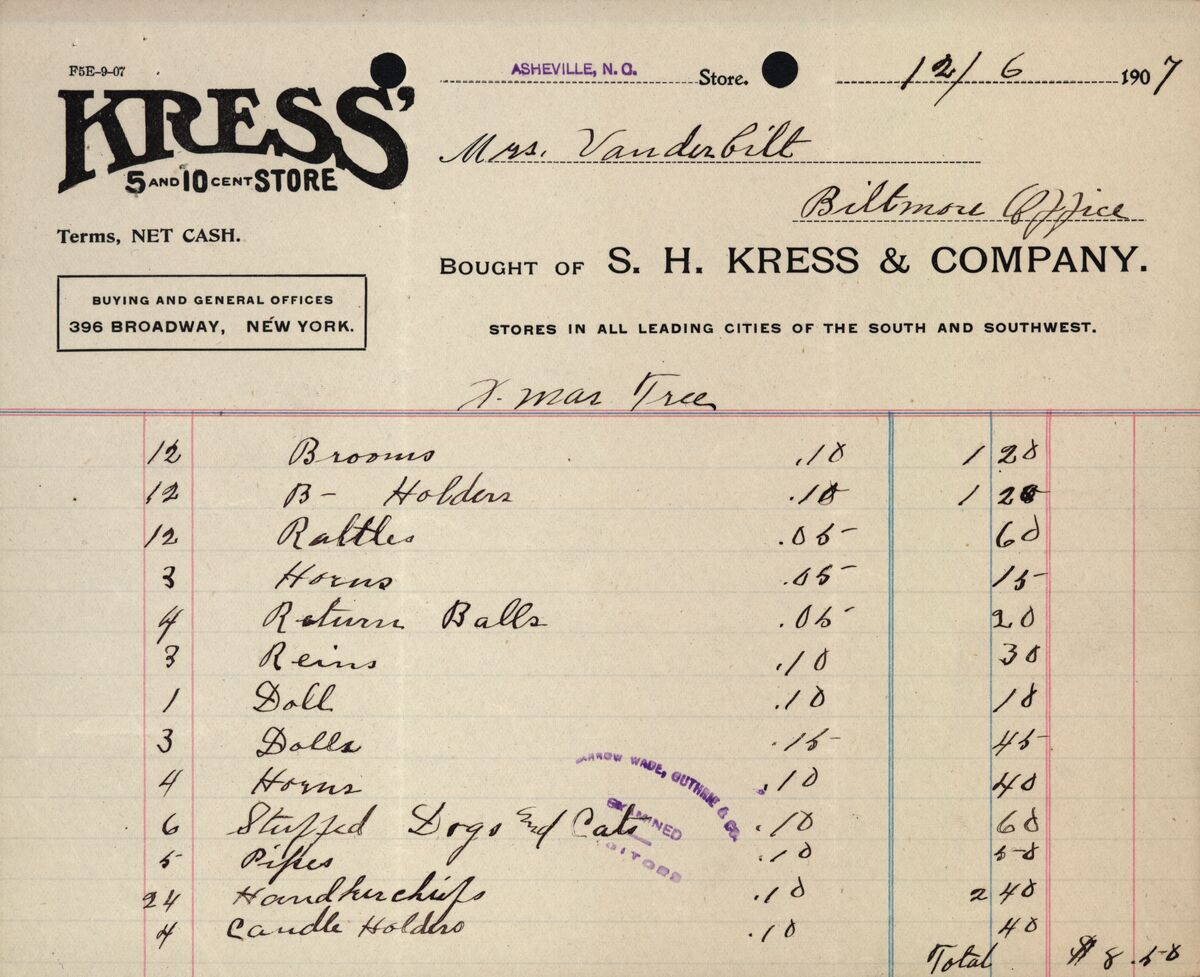 F5E-9-07
KRESS'
5 AND 10 CENT STORE
Terms, NET CASH.
BUYING AND GENERAL OFFICES
396 BROADWAY, NEW YORK.
ASHEVILLE, N. C. Store. 12/6 1907
Mrs. Vanderbilt
Biltmore Office
BOUGHT OF S. H. KRESS & COMPANY.
STORES IN ALL LEADING CITIES OF THE SOUTH AND SOUTHWEST.
X-mas Tree
12 Brooms .10 1 20
12 B- Holders .10 1 20
12 Rattles .05 60
3 Horns .05 15
4 Return Balls .05 20
3 Reins .10 30
1 Doll .10 10
3 Dolls .15 45
4 Horns .10 40
6 Stuffed Dogs and Cats .10 60
5 Pipes .10 50
24 Handkerchiefs .10 2 40
4 Candle Holders .10 40
Total $8.50
WADE, GUTHRIE & CO.
EXAMINED